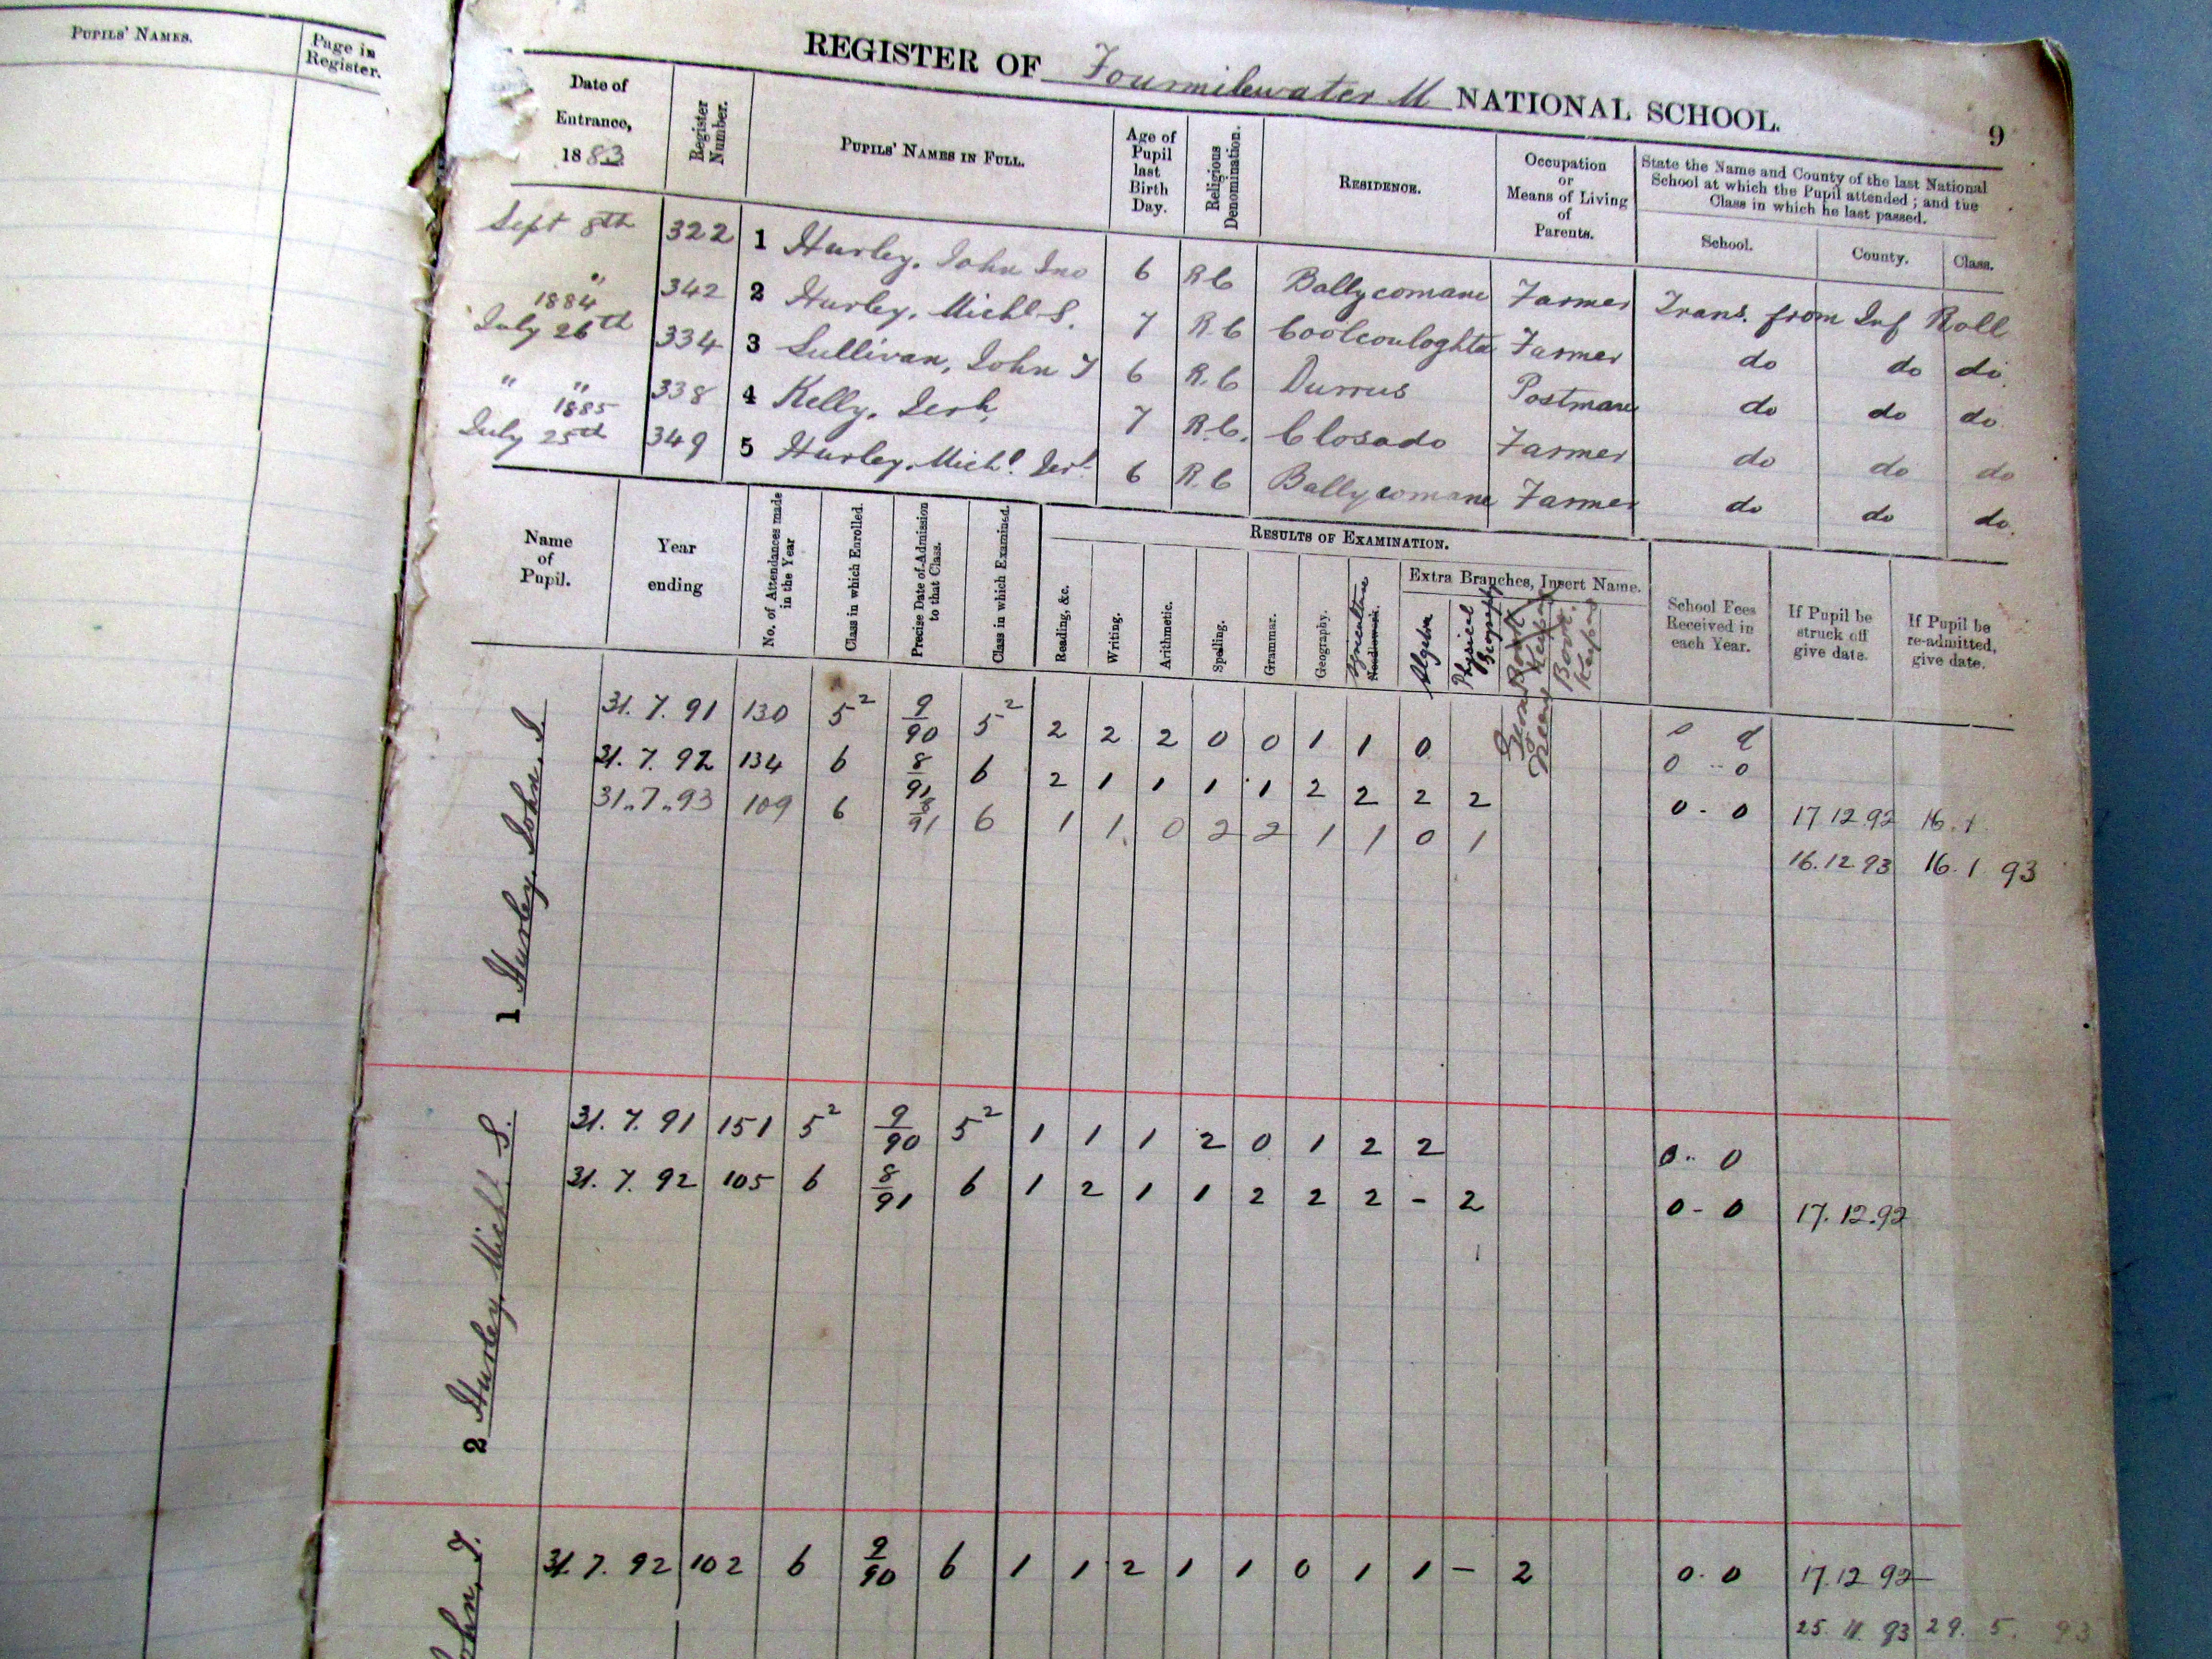 PUPILS' NAMES. Page in Register.
REGISTER OF Fourmilewater M NATIONAL SCHOOL. 9
Date of Entrance, 1883 Register Number. PUPILS' NAMES IN FULL. Age of Pupil last Birth Day. Religious Denomination. RESIDENCE. Occupation or Means of Living of Parents. State the Name and County of the last National School at which the Pupil attended; and the Class in which he last passed.
School. County. Class.
Sept 8th 322 1 Hurley, John Jno 6 R C Ballycomane Farmer Trans. from Inf Roll
" 342 2 Hurley, Michl S. 7 R. C Coolcouloghta Farmer do do do.
1884 July 26th 334 3 Sullivan, John T 6 R. C Durrus Postman do do do.
" " 338 4 Kelly, Jerh. 7 R. C. Closado Farmer do do do
1885 July 25th 349 5 Hurley, Michl. Jerh 6 R. C Ballycomane Farmer do do do.
Name of Pupil. Year ending No. of Attendances made in the Year Class in which Enrolled. Precise Date of Admission to that Class. Class in which Examined. RESULTS OF EXAMINATION. School Fees Received in each Year. If Pupil be struck off give date. If Pupil be re-admitted, give date.
Reading, &c. Writing. Arithmetic. Spelling. Grammar. Geography. Agriculture Needlework. Extra Branches, Insert Name. Algebra Physical Geography Book Keeping
1 Hurley, John, J.
31. 7. 91 130 5² 9/90 5² 2 2 2 0 0 1 1 0 s d
0 - 0
31. 7. 92 134 6 8/91 6 2 1 1 1 1 2 2 2 2 0 - 0 17 12.92 16. 1
31..7..93 109 6 8/91 6 1 1 0 2 2 1 1 0 1 16.12 93 16. 1 93
2 Hurley, Michl. S.
31. 7. 91 151 5² 9/90 5² 1 1 1 2 0 1 2 2 0.. 0
31. 7. 92 105 6 8/91 6 1 2 1 1 2 2 2 - 2 0 - 0 17. 12.92
John, T.
31. 7. 92 102 6 9/90 6 1 1 2 1 1 0 1 1 - 2 0. 0 17.12 92
25. 11. 93 29. 5. 93